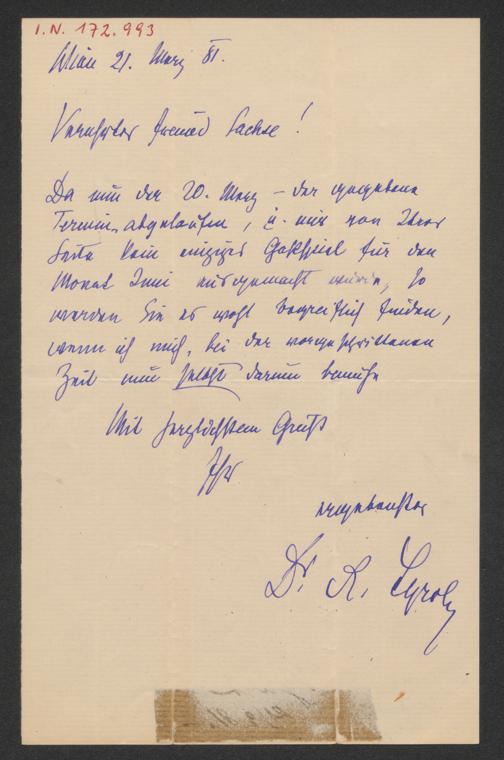 I.N. 172.993
Wien 21. März 81.
Verehrter Freund Sachse!
Da nun der 20. März – der gegebene
Termin, abgelaufen, u. mir von Ihrer
Seite kein einziges Gastspiel für den
Monat Juni ausgemacht wurde, so
werden Sie es wohl begreiflich finden,
wenn ich mich, bei der vorgeschrittenen
Zeit nun selbst darum bemühe
Mit herzlichstem Gruß
Ihr
ergebenster
Dr. R.